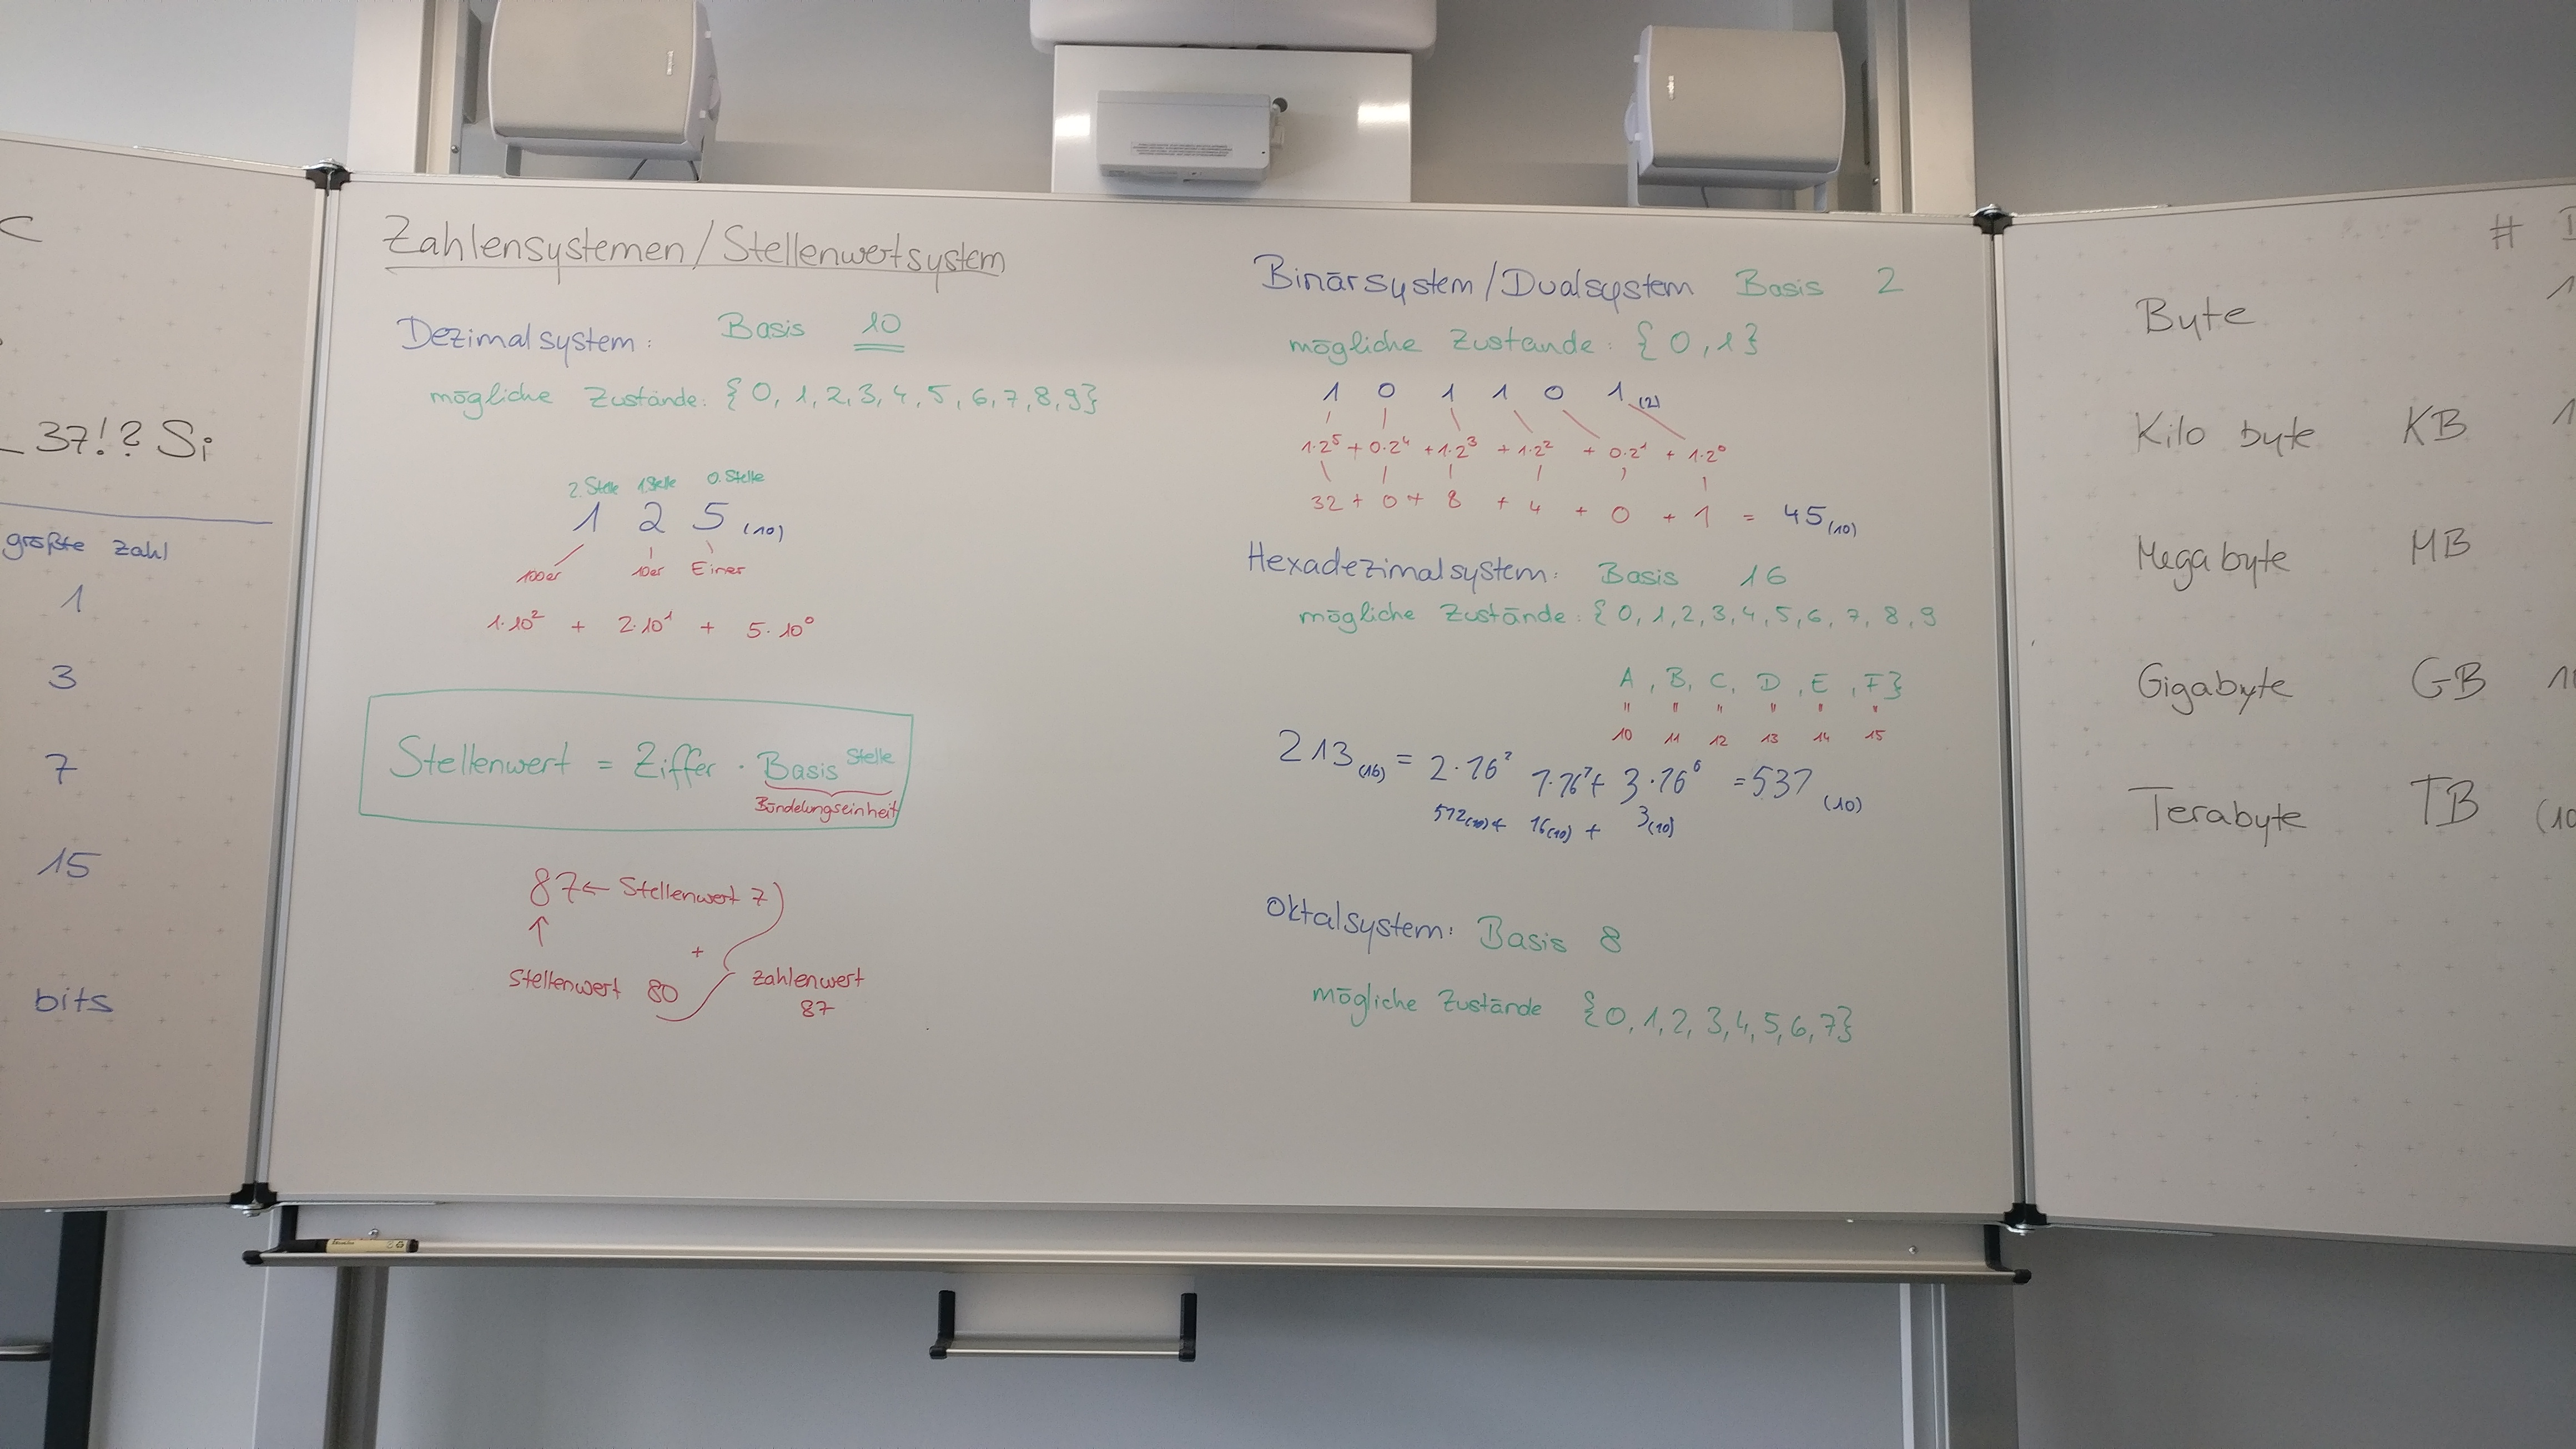 C
37!? Si
größte Zahl
1
3
7
15
bits
Zahlensystemen/Stellenwertsystem
Dezimalsystem: Basis 10
mögliche Zustände: {0, 1, 2, 3, 4, 5, 6, 7, 8, 9}
2. Stelle 1. Stelle 0. Stelle
1 2 5 (10)
100er 10er Einer
1·10² + 2·10¹ + 5·10⁰
Stellenwert = Ziffer · Basis^Stelle
Bündelungseinheit
87 ← Stellenwert 7
↑
+
Stellenwert 80 Zahlenwert
87
Binärsystem/Dualsystem Basis 2
mögliche Zustande: {0, 1}
1 0 1 1 0 1 (2)
1·2⁵ + 0·2⁴ + 1·2³ + 1·2² + 0·2¹ + 1·2⁰
32 + 0 + 8 + 4 + 0 + 1 = 45 (10)
Hexadezimalsystem: Basis 16
mögliche Zustände: {0, 1, 2, 3, 4, 5, 6, 7, 8, 9
A, B, C, D, E, F}
" " " " " "
10 11 12 13 14 15
213 (16) = 2·16² 1·16¹+ 3·16⁰ = 537 (10)
512(10)+ 16(10) + 3(10)
Oktalsystem: Basis 8
mögliche Zustände {0, 1, 2, 3, 4, 5, 6, 7}
#
Byte 1
Kilo byte KB 1
Megabyte MB
Gigabyte GB 1
Terabyte TB (10